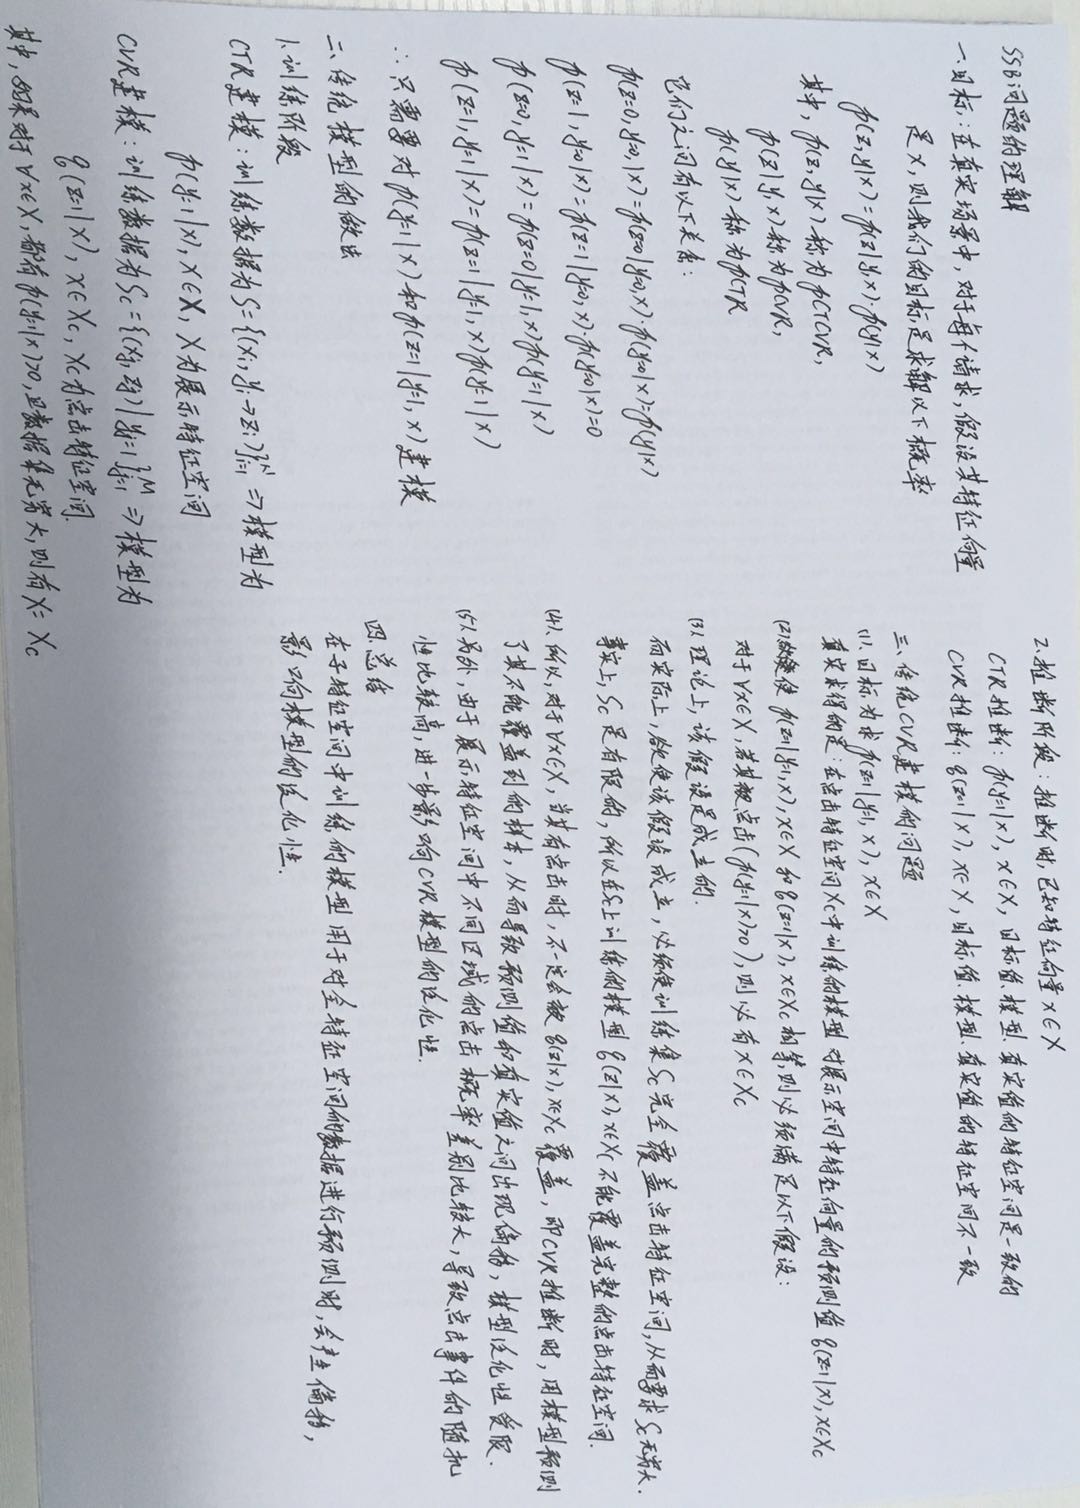 SSB问题的理解
一.目标:在真实场景中,对于每个请求,假设其特征向量
是x,则我们的目标是求解以下概率
p(z,y|x)=p(z|y,x)·p(y|x)
其中,p(z,y|x)称为pCTCVR,
p(z|y,x)称为pCVR,
p(y|x)称为pCTR
它们之间有以下关系:
p(z=0,y=0,|x)=p(z=0|y=0,x)·p(y=0|x)=p(y|x)
p(z=1,y=0|x)=p(z=1|y=0,x)·p(y=0|x)=0
p(z=0,y=1|x)=p(z=0|y=1,x)p(y=1|x)
p(z=1,y=1|x)=p(z=1|y=1,x)p(y=1|x)
∴只需要对p(y=1|x)和p(z=1|y=1,x)建模
二、传统模型的做法
1.训练阶段
CTR建模:训练数据为S={(xi,yi→zi)}ᴺi=1 ⇒模型为
p(y=1|x),x∈X,X为展示特征空间
CVR建模:训练数据为Sc={(xj,zj)|yj=1}ᴹj=1 ⇒模型为
q(z=1|x),x∈Xc,Xc为点击特征空间.
其中,如果对于∀x∈X,都有p(y=1|x)>0,且数据集无穷大,则有X=Xc
2.推断阶段:推断时,已知特征向量x∈X
CTR推断:p(y=1|x),x∈X,目标值、模型、真实值的特征空间是一致的
CVR推断:q(z=1|x),x∈X,目标值、模型、真实值的特征空间不一致
三、传统CVR建模的问题
(1).目标为求p(z=1|y=1,x),x∈X
真实求得的是:在点击特征空间Xc中训练的模型对展示空间中特征向量的预测值q(z=1|x),x∈Xc
(2)欲使p(z=1|y=1,x),x∈X和q(z=1|x),x∈Xc相等,则必须满足以下假设:
对于∀x∈X,若其被点击(p(y=1|x)>0),则必有x∈Xc
(3)、理论上,该假设是成立的.
而实际上,欲使该假设成立,必须使训练集Sc完全覆盖点击特征空间,从而要求Sc无穷大.
事实上,Sc是有限的,所以在Sc上训练的模型q(z|x),x∈Xc不能覆盖完整的点击特征空间.
(4)、所以,对于∀x∈X,当其有点击时,不一定会被q(z|x),x∈Xc覆盖,即CVR推断时,用模型预测
了其不能覆盖到的样本,从而导致预测值和真实值之间出现偏移,模型泛化性受限.
(5)、另外,由于展示特征空间中不同区域的点击概率差别比较大,导致点击事件的随机
性比较高,进一步影响CVR模型的泛化性.
四.总结
在子特征空间中训练的模型用于对全特征空间的数据进行预测时,会产生偏移,
影响模型的泛化性.